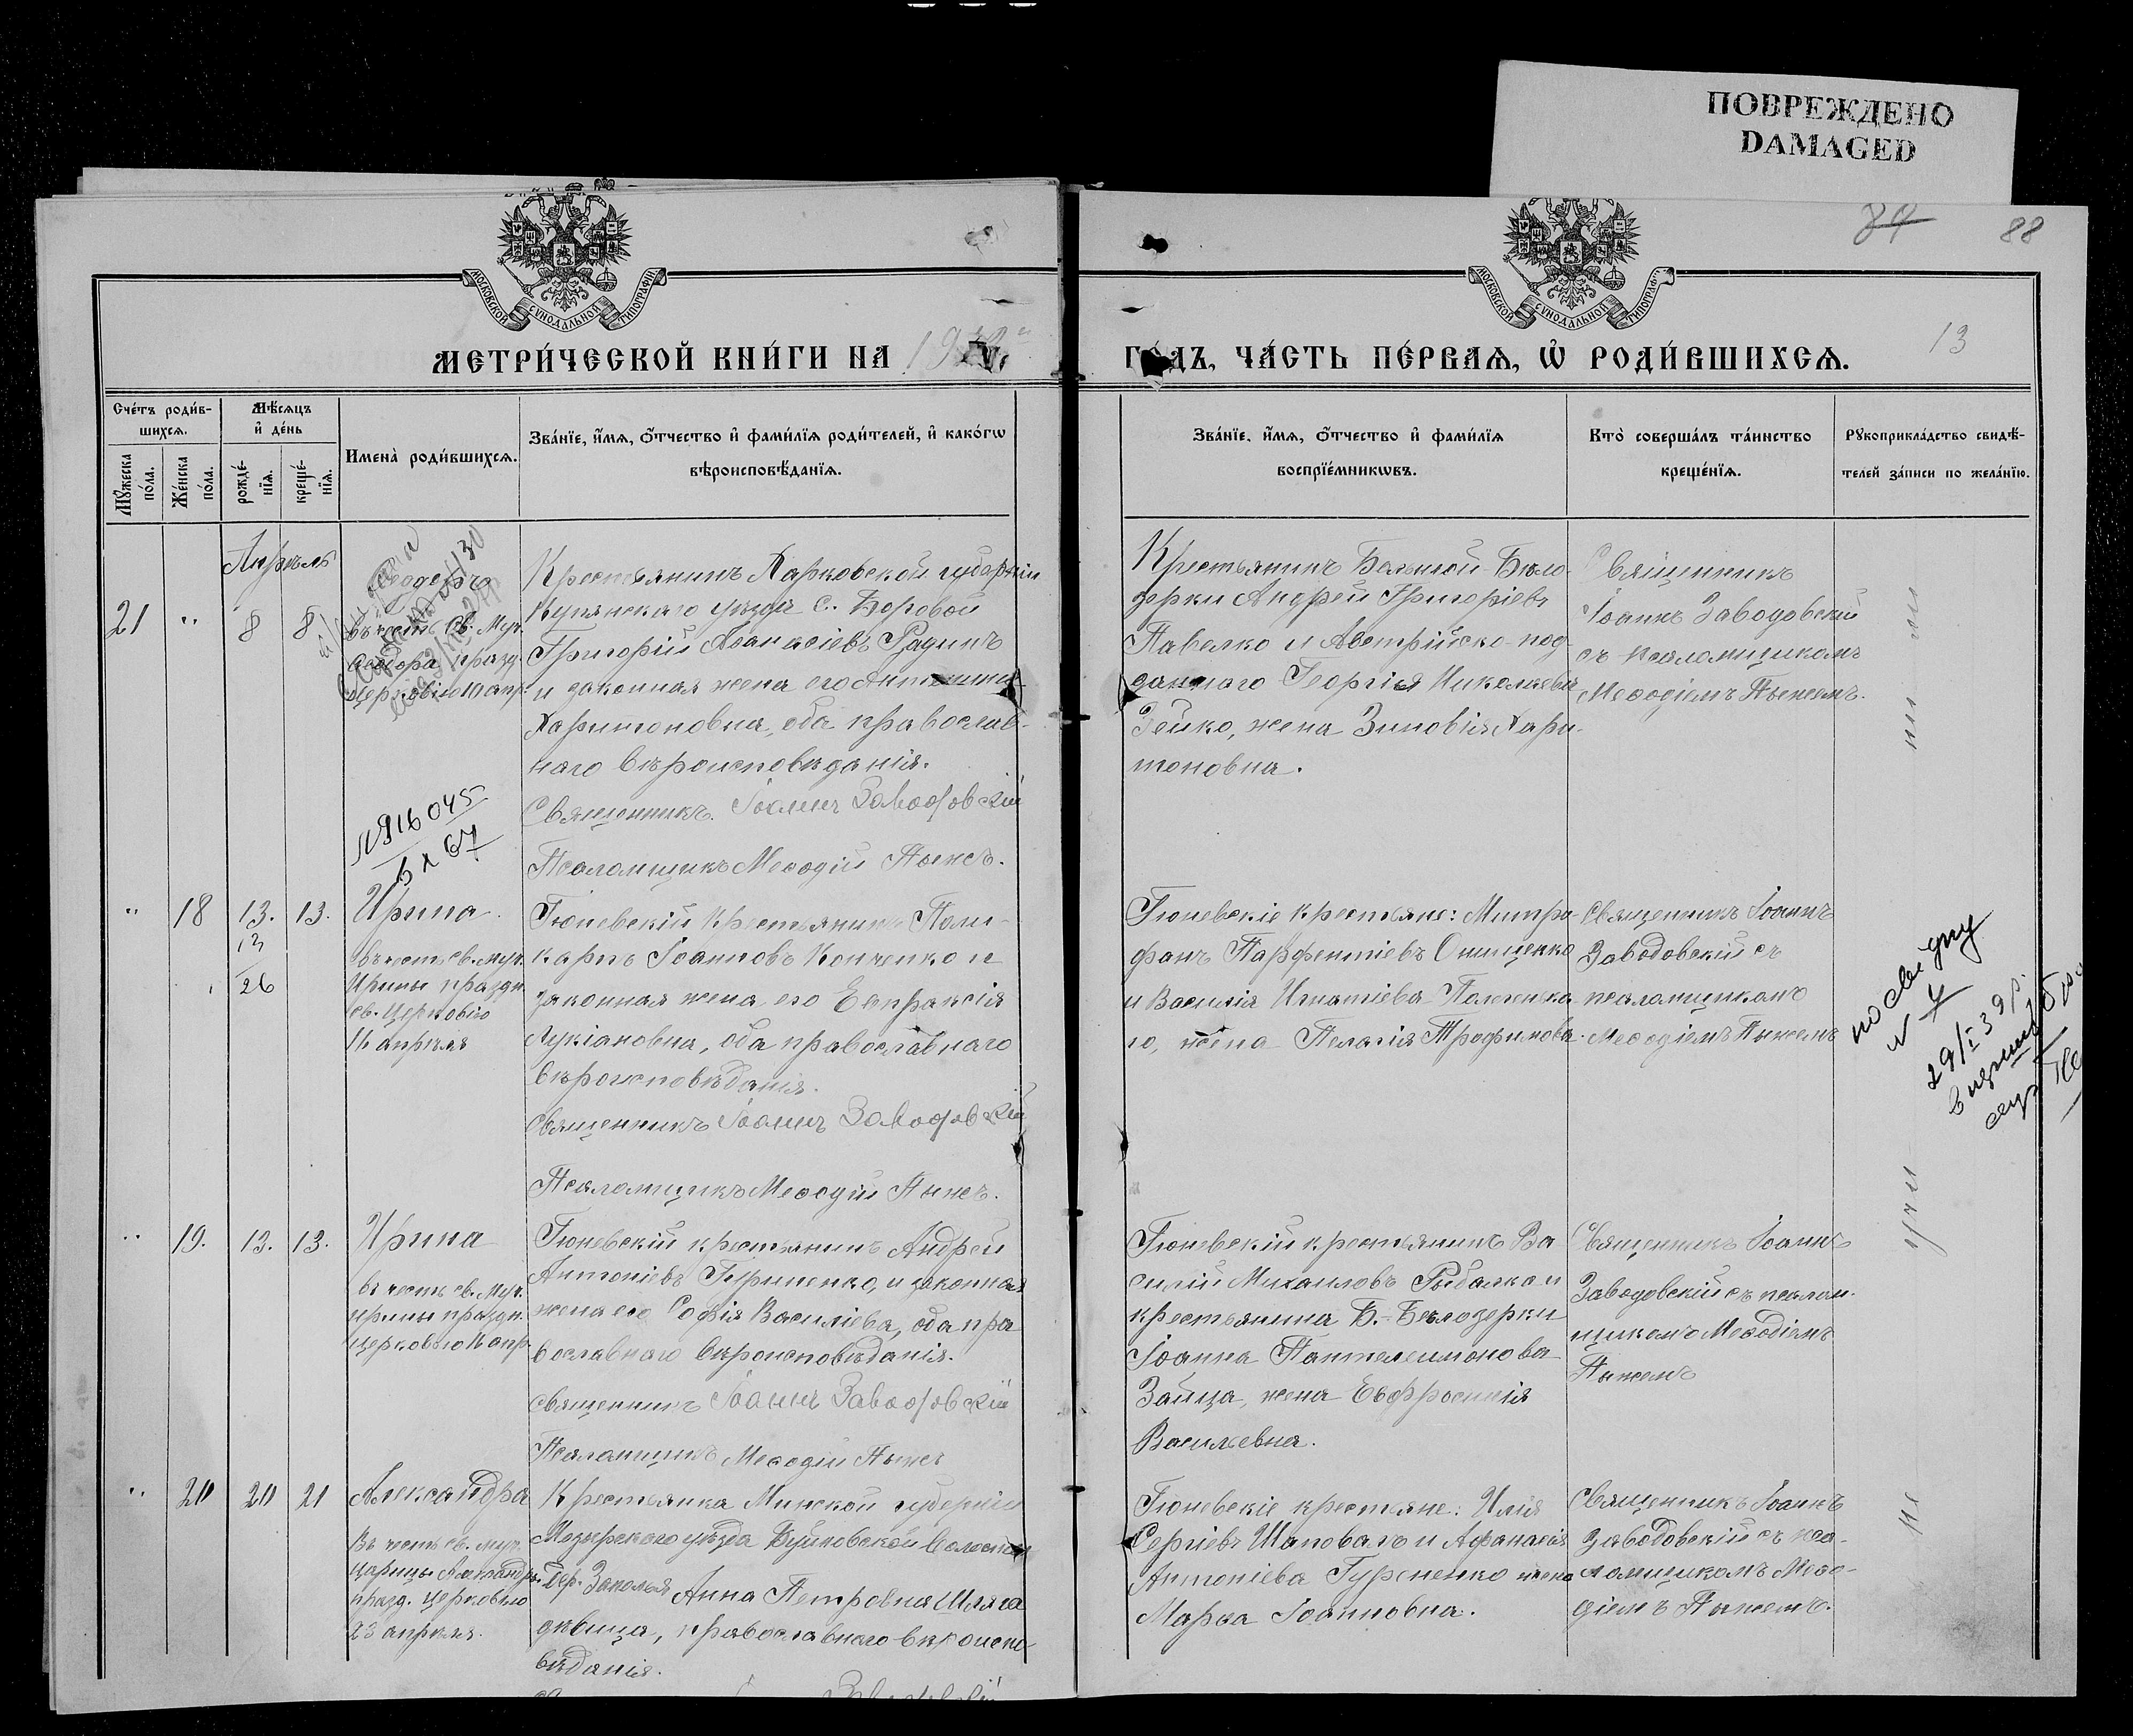 ПОВРЕЖДЕНО
DAMAGED
МОСКОВСКОЙ СУНОДАЛЬНОЙ ТИПОГРАФІИ
МОСКОВСКОЙ СУНОДАЛЬНОЙ ТИПОГРАФІИ
84 88
13
МЕТРИ́ЧЕСКОЙ КНИ́ГИ НА 19
ГО́ДЪ, ЧА́СТЬ ПЕ́РВАѦ, Ѡ҆ РОДИ́ВШИХСѦ.
Сче́тъ роди́в-
шихсѧ.
Мꙋ́жеска по́ла.
Же́нска по́ла.
Мѣ́сѧцъ
и҆ де́нь
рожде́-
нїѧ.
креще́-
нїѧ.
Имена̀ роди́вшихсѧ.
Зва́нїе, и҆́мѧ, ѻ҆́тчество и҆ фами́лїѧ роди́телей, и҆ како́гѡ
вѣроисповѣ́данїѧ.
Зва́нїе, и҆́мѧ, ѻ҆́тчество и҆ фами́лїѧ
воспрїе́мникѡвъ.
Кто̀ соверша́лъ та́инство
креще́нїѧ.
Рꙋкоприкла́дство свидѣ́-
телей за́писи по жела́нїю.
Апрѣль
21 " 8 8
Ѳеодоръ
въ честь св. Муч.
Ѳеодора празд.
церковію 10 апр.
Крестьянинъ Харьковской губерніи
Купянскаго уѣзда с. Боровой
Григорій Аѳанасіевъ Радинъ
и законная жена его
Харитоновна, оба православ-
наго вѣроисповѣданія.
Священникъ Іоаннъ Заводовскій
Псаломщикъ Меѳодій Пыжъ.
Крестьянинъ Большой-Бѣло-
зерки Андрей Григоріевъ
Павелко и Австрійско-под-
даннаго Георгія Николаева
Зейко, жена Зиновія Хари-
тоновна.
Священникъ
Іоаннъ Заводовскій
съ псаломщикомъ
Меѳодіемъ Пыжемъ.
№916045
6 X 67
" 18 13. 13.
13
26
Ирина
въ честь св. муч.
Ирины праздн.
св. Церковію
16 апрѣля
Гюневскій крестьянинъ Поли-
карпъ Іоанновъ Конченко и
законная жена его Евпраксія
Лукіановна, оба православнаго
вѣроисповѣданія.
Священникъ Іоаннъ Заводовскій
Псаломщикъ Меѳодій Пыжъ.
Гюневскіе крестьяне: Митро-
фанъ Парфентіевъ Онищенко
и Василія Игнатіева
жена Пелагія Трофимова.
Священникъ Іоаннъ
Заводовскій съ
псаломщикомъ
Меѳодіемъ Пыжемъ
29/I 39 г.
" 19. 13. 13.
Ирина
въ честь св. муч.
Ирины праздн.
церковію 16 апр.
Гюневскій крестьянинъ Андрей
Антоніевъ Гуриненко, и законная
жена его Софія Василіева, оба пра
вославнаго вѣроисповѣданія.
Священникъ Іоаннъ Заводовскій
Псаломщикъ Меѳодій Пыжъ
Гюневскій крестьянинъ Ва
силій Михаиловъ Рыбалко и
крестьянина Б.-Бѣлозерки
Іоанна Пантелеимонова
Зайца, жена Евфросинія
Васильевна.
Священникъ Іоаннъ
Заводовскій съ псалом-
щикомъ Меѳодіемъ
Пыжемъ
" 20 20 21
Александра
Въ честь св. муч.
Царицы Александры
празд. Церковію
23 апрѣля.
Крестьянка Минской губерніи
Мозырскаго уѣзда волости
дер. Анна Петровна Шляга
дѣвица, православнаго вѣроиспо-
вѣданія.
Гюневскіе крестьяне: Илія
Сергіевъ Шаповалъ и Афанасія
Антоніева Гуриненко жена
Марѳа Іоанновна.
Священникъ Іоаннъ
Заводовскій съ пса-
ломщикомъ Меѳо-
діемъ Пыжемъ.